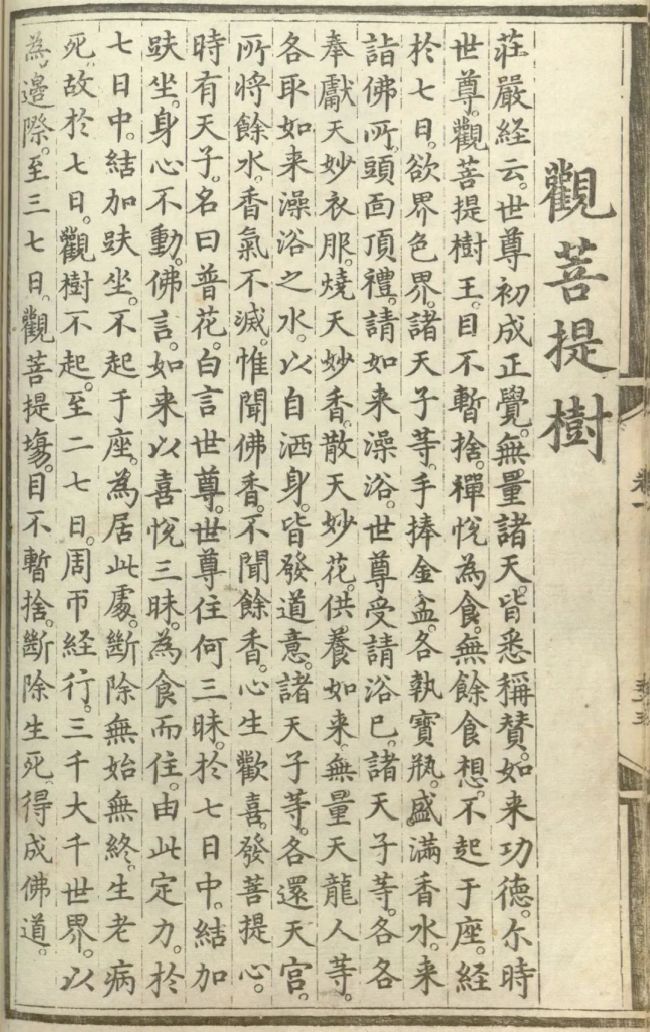 觀菩提樹
莊嚴経云。世尊初成正覺。無量諸天。皆悉稱賛。如来功德。尓時
世尊。觀菩提樹王。目不暫捨。禪悅為食。無餘食想。不起于座。経
於七日。欲界色界。諸天子等。手捧金盆。各執寶瓶。盛滿香水。来
詣佛所。頭面頂禮。請如来澡浴。世尊受請浴已。諸天子等。各各
奉獻天妙衣服。燒天妙香。散天妙花。供養如来。無量天龍人等。
各取如来澡浴之水。以自洒身。皆發道意。諸天子等。各還天宮。
所將餘水。香氣不滅。惟聞佛香。不聞餘香。心生歡喜。發菩提心。
時有天子。名曰普花。白言世尊。世尊住何三昧。於七日中。結加
趺坐。身心不動。佛言。如来以喜悅三昧。為食而住。由此定力。於
七日中。結加趺坐。不起于座。為居此處。斷除無始無終。生老病
死。故於七日。觀樹不起。至二七日。周帀経行。三千大千世界。以
為邊際。至三七日。觀菩提場。目不暫捨。斷除生死。得成佛道。
卷一